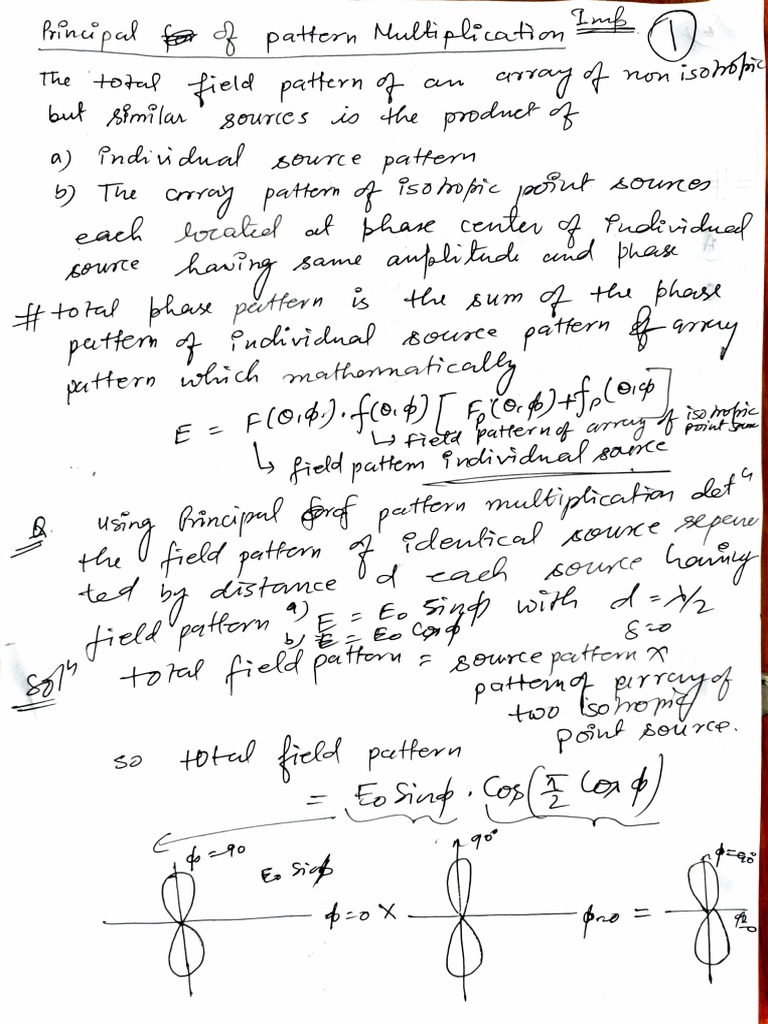 Principal of pattern Multiplication Imp 1
The total field pattern of an array of non isotropic
but similar sources is the product of
a) individual source pattern
b) The array pattern of isotropic point sources
each located at phase center of individual
source having same amplitude and phase
# total phase pattern is the sum of the phase
pattern of individual source pattern & array
pattern which mathematically
E = F(θ,φ).f(θ,φ) [Fp(θ,φ)+fp(θ,φ]
↳ field pattern of array of isotropic point source
↳ field pattern individual source
Q. Using Principal of pattern multiplication detⁿ
the field pattern of identical source sepera
ted by distance d each source having
field pattern a) E = E₀ Sinφ with d = λ/2
b) E = E₀ Cosφ δ=0
Solⁿ total field pattern = source pattern ×
pattern of array of
two isotropic
point source.
so total field pattern
= E₀ Sinφ . Cos(π/2 Cos φ)
φ=90 E₀ Sinφ 90° φ=90°
φ=0 × φ=0 =